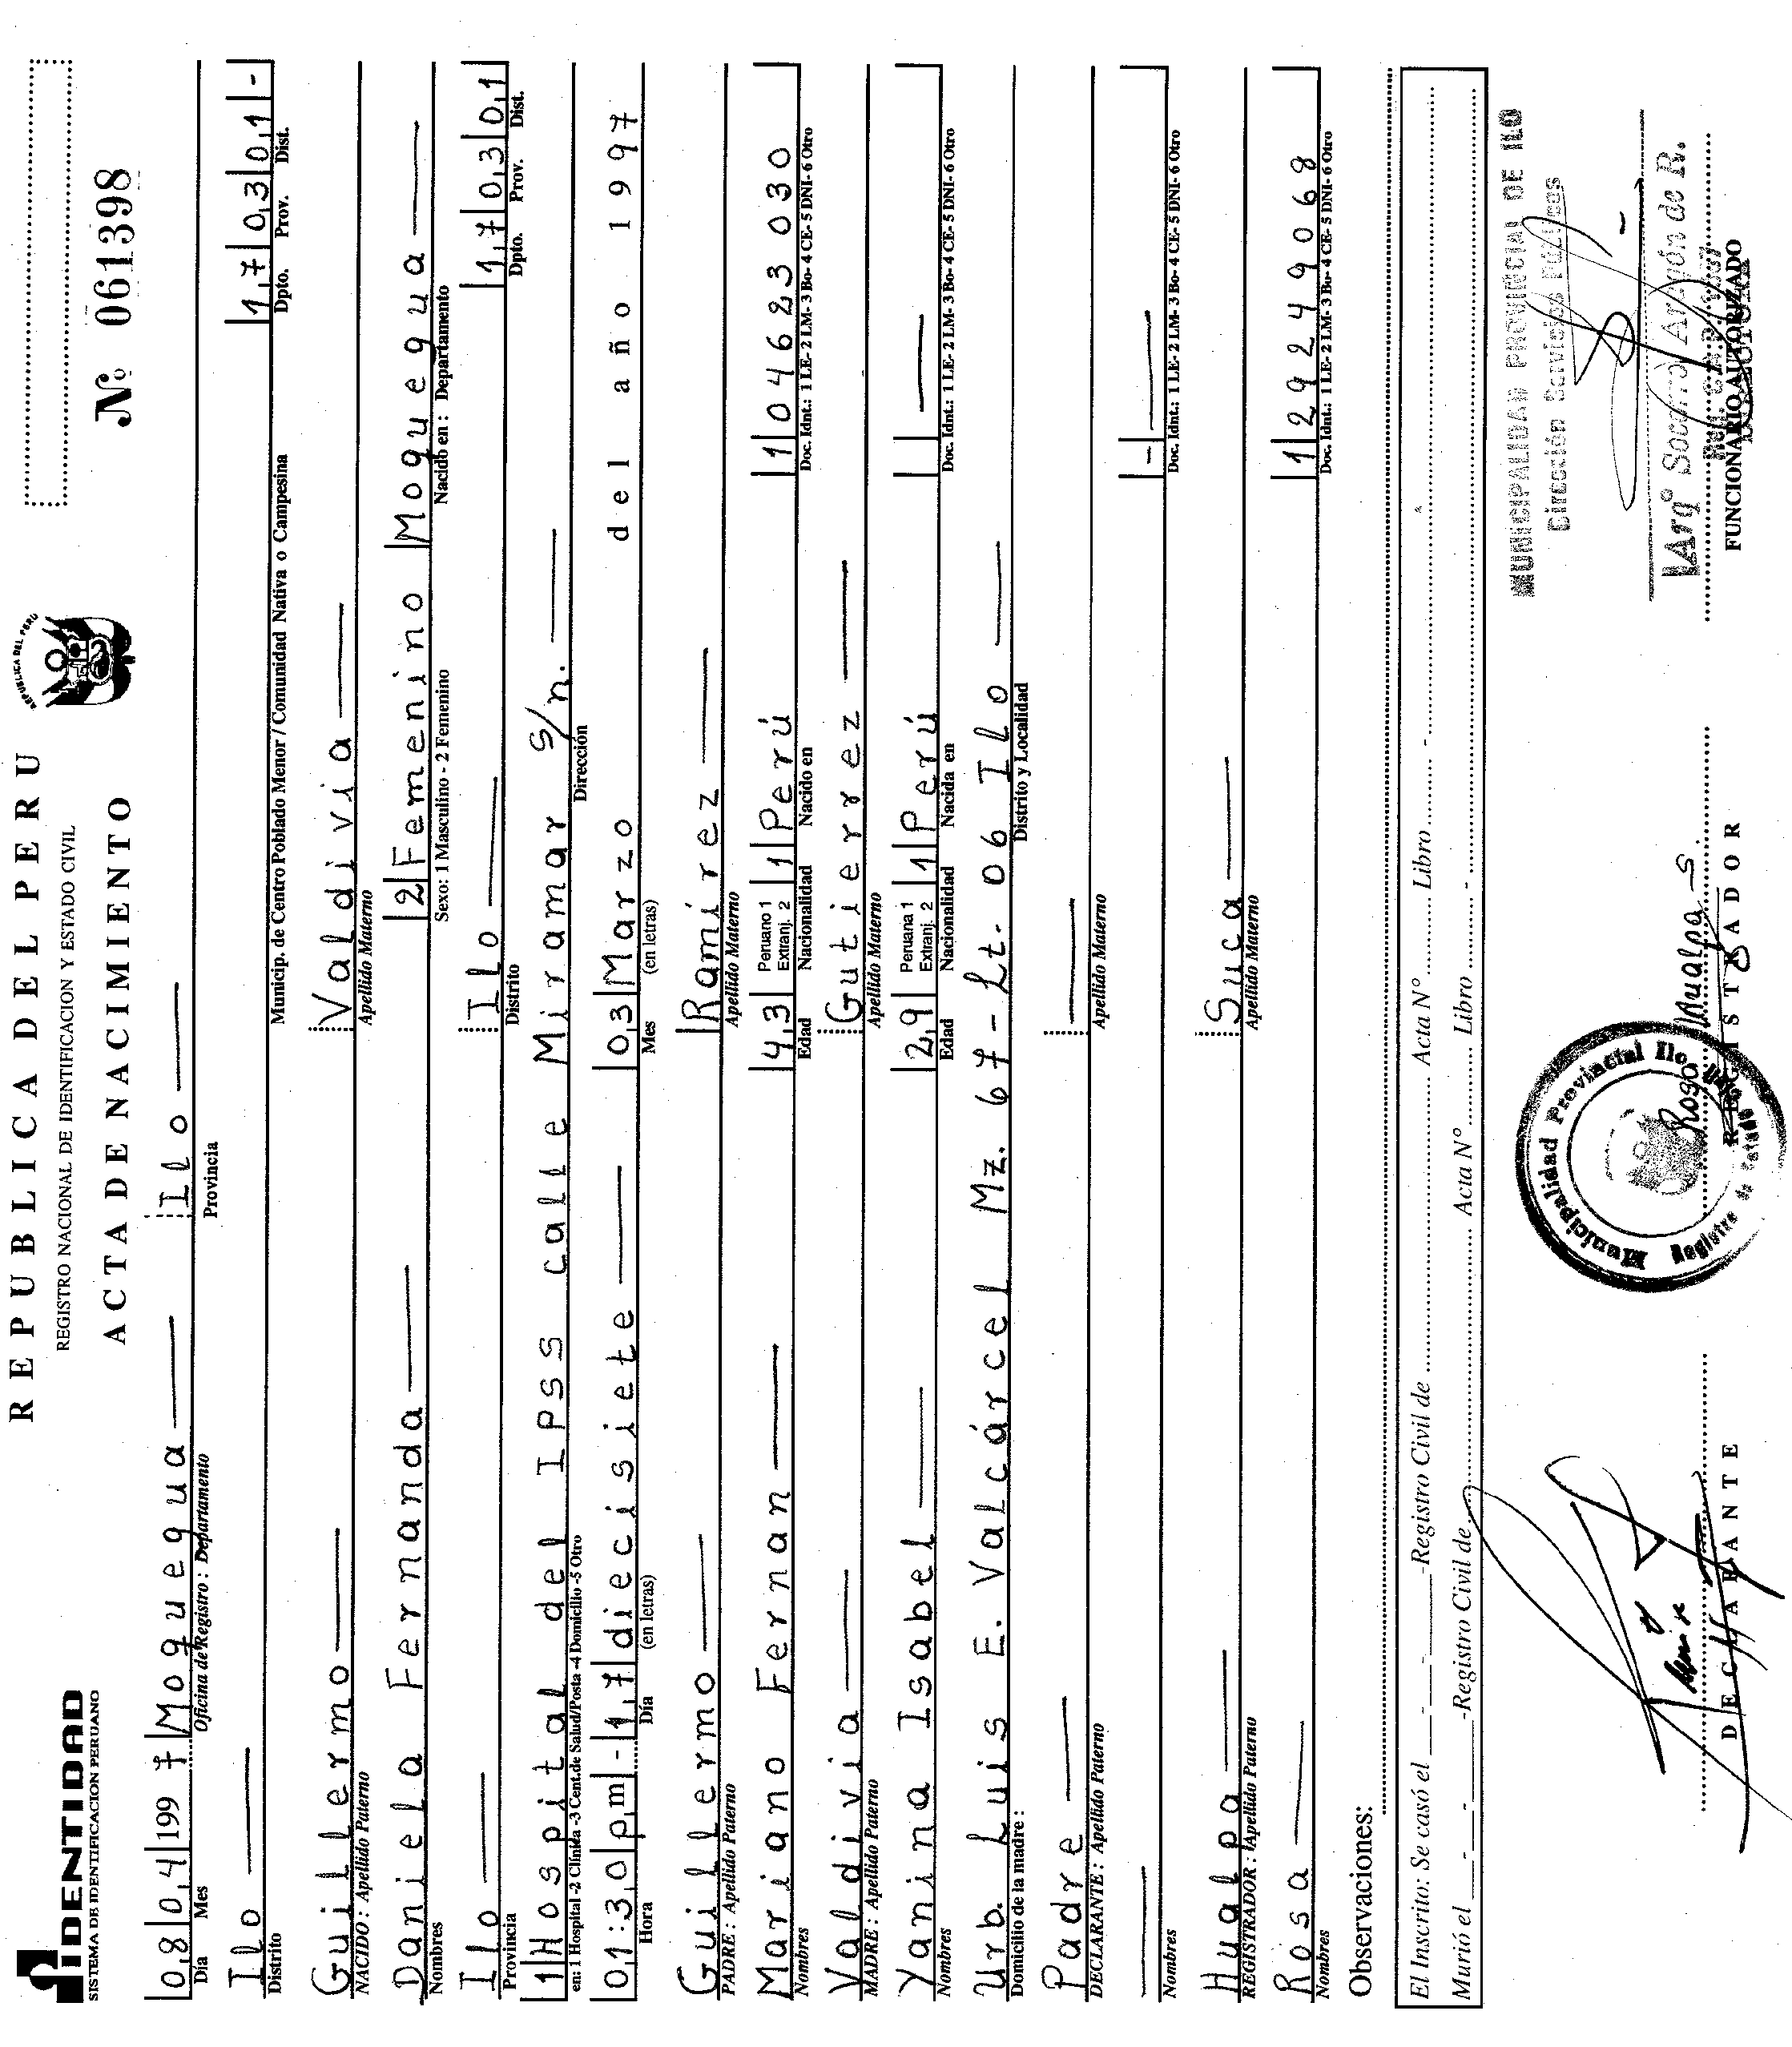 REPUBLICA DEL PERU
REGISTRO NACIONAL DE IDENTIFICACION Y ESTADO CIVIL
ACTA DE NACIMIENTO
IDENTIDAD
SISTEMA DE IDENTIFICACION PERUANO
REPUBLICA DEL PERU
Nº 061398
08 04 1997 Moquegua — Ilo —
Día Mes Oficina de Registro : Departamento Provincia
Ilo — 17 03 01 -
Distrito Municip. de Centro Poblado Menor / Comunidad Nativa o Campesina Dpto. Prov. Dist.
Guillermo — Valdivia —
NACIDO : Apellido Paterno Apellido Materno
Daniela Fernanda — 2 Femenino Moquegua —
Nombres Sexo: 1 Masculino - 2 Femenino Nacido en : Departamento
Ilo — Ilo — 17 03 01
Provincia Distrito Dpto. Prov. Dist.
1 Hospital del IPSS calle Miramar s/n. —
en: 1 Hospital -2 Clínica -3 Cent.de Salud/Posta -4 Domicilio -5 Otro Dirección
01:30 pm - 17 diecisiete — 03 Marzo del año 1997
Hora Día (en letras) Mes (en letras)
Guillermo — Ramírez —
PADRE : Apellido Paterno Apellido Materno
Mariano Fernan — 43 Peruano 1 Extranj. 2 1 Perú 1 04623030
Nombres Edad Nacionalidad Nacido en Doc. Idnt.: 1 LE- 2 LM- 3 Bo- 4 CE- 5 DNI- 6 Otro
Valdivia — Gutierrez —
MADRE : Apellido Paterno Apellido Materno
Yanina Isabel — 29 Peruana 1 Extranj. 2 1 Perú —
Nombres Edad Nacionalidad Nacida en Doc. Idnt.: 1 LE- 2 LM- 3 Bo- 4 CE- 5 DNI- 6 Otro
Urb. Luis E. Valcárcel Mz. 67 - Lt. 06 Ilo —
Domicilio de la madre : Distrito y Localidad
Padre — —
DECLARANTE : Apellido Paterno Apellido Materno
— - —
Nombres Doc. Idnt.: 1 LE- 2 LM- 3 Bo- 4 CE- 5 DNI- 6 Otro
Hualpa — Suca —
REGISTRADOR : Apellido Paterno Apellido Materno
Rosa — 1 29249068
Nombres Doc. Idnt.: 1 LE- 2 LM- 3 Bo- 4 CE- 5 DNI- 6 Otro
Observaciones:
El Inscrito: Se casó el - - -Registro Civil de Acta Nº Libro -
Murió el - - -Registro Civil de Acta Nº Libro -
MUNICIPALIDAD PROVINCIAL DE ILO
Dirección Servicios Públicos
Municipalidad Provincial Ilo
Registro de Estado
Rosa Hualpa S.
Arqº Socorro Aragón de R.
DECLARANTE REGISTRADOR FUNCIONARIO AUTORIZADO